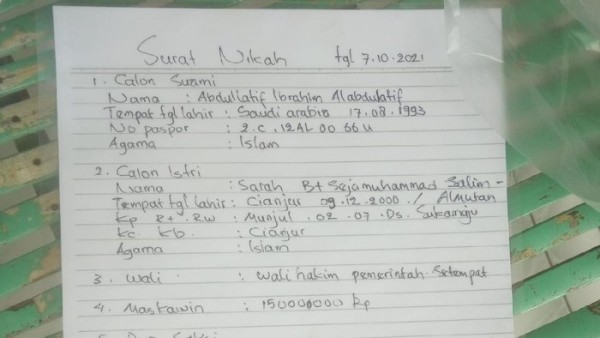 Surat Nikah tgl 7.10.2021
1. Calon Suami
Nama : Abdullatif Ibrahim Alabdulatif
Tempat tgl lahir : Saudi arabia 17.08.1993
No paspor : 2.C.12AL 00 66 u
Agama : Islam
2. Calon Istri
Nama : Sarah Bt Sejamuhammad Salim -
Tempat tgl lahir : Cianjur 09.12.2000 / Almutan
Kp Rt. Rw : Munjul . 02 . 07 . Ds.
Kc Kb. : Cianjur
Agama : Islam
3. Wali : Wali hakim pemerintah Setempat
4. Maskawin : 150000000 Rp